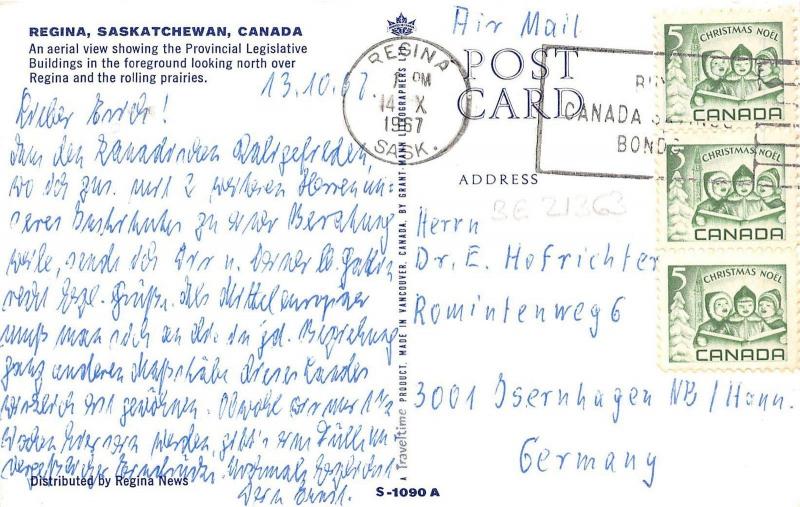 REGINA, SASKATCHEWAN, CANADA
An aerial view showing the Provincial Legislative
Buildings in the foreground looking north over
Regina and the rolling prairies.
13.10.67.
Lieber Erich!
Aus den Kanadischen
wo ich zus. mit 2 weiteren Herren un-
seres Institutes zu einer Beratung
weile, sende ich Dir u. Deiner lb. Gattin
recht herzl. Grüße. Als Mitteleuropäer
muß man sich an die in jd. Beziehung
ganz anderen Maßstäbe dieses Landes
wirklich erst gewöhnen. Obwohl wir nur 1½
Wochen hier sein werden, gibt's eine Fülle un-
vergeßlicher Eindrücke. Nochmals herzlichst
Dein Ernst.
Distributed by Regina News
S-1090 A
a Traveltime PRODUCT, MADE IN VANCOUVER, CANADA, BY GRANT-MANN LITHOGRAPHERS
Air Mail
POST
CARD
ADDRESS
BE 21363
REGINA
PM
14 X
1967
SASK.
CANADA
BONDS
5
CHRISTMAS NOËL
CANADA
5
CHRISTMAS NOËL
CANADA
5
CHRISTMAS NOËL
CANADA
Herrn
Dr. E. Hofrichter
Romintenweg 6
3001 Isernhagen NB/Hann.
Germany